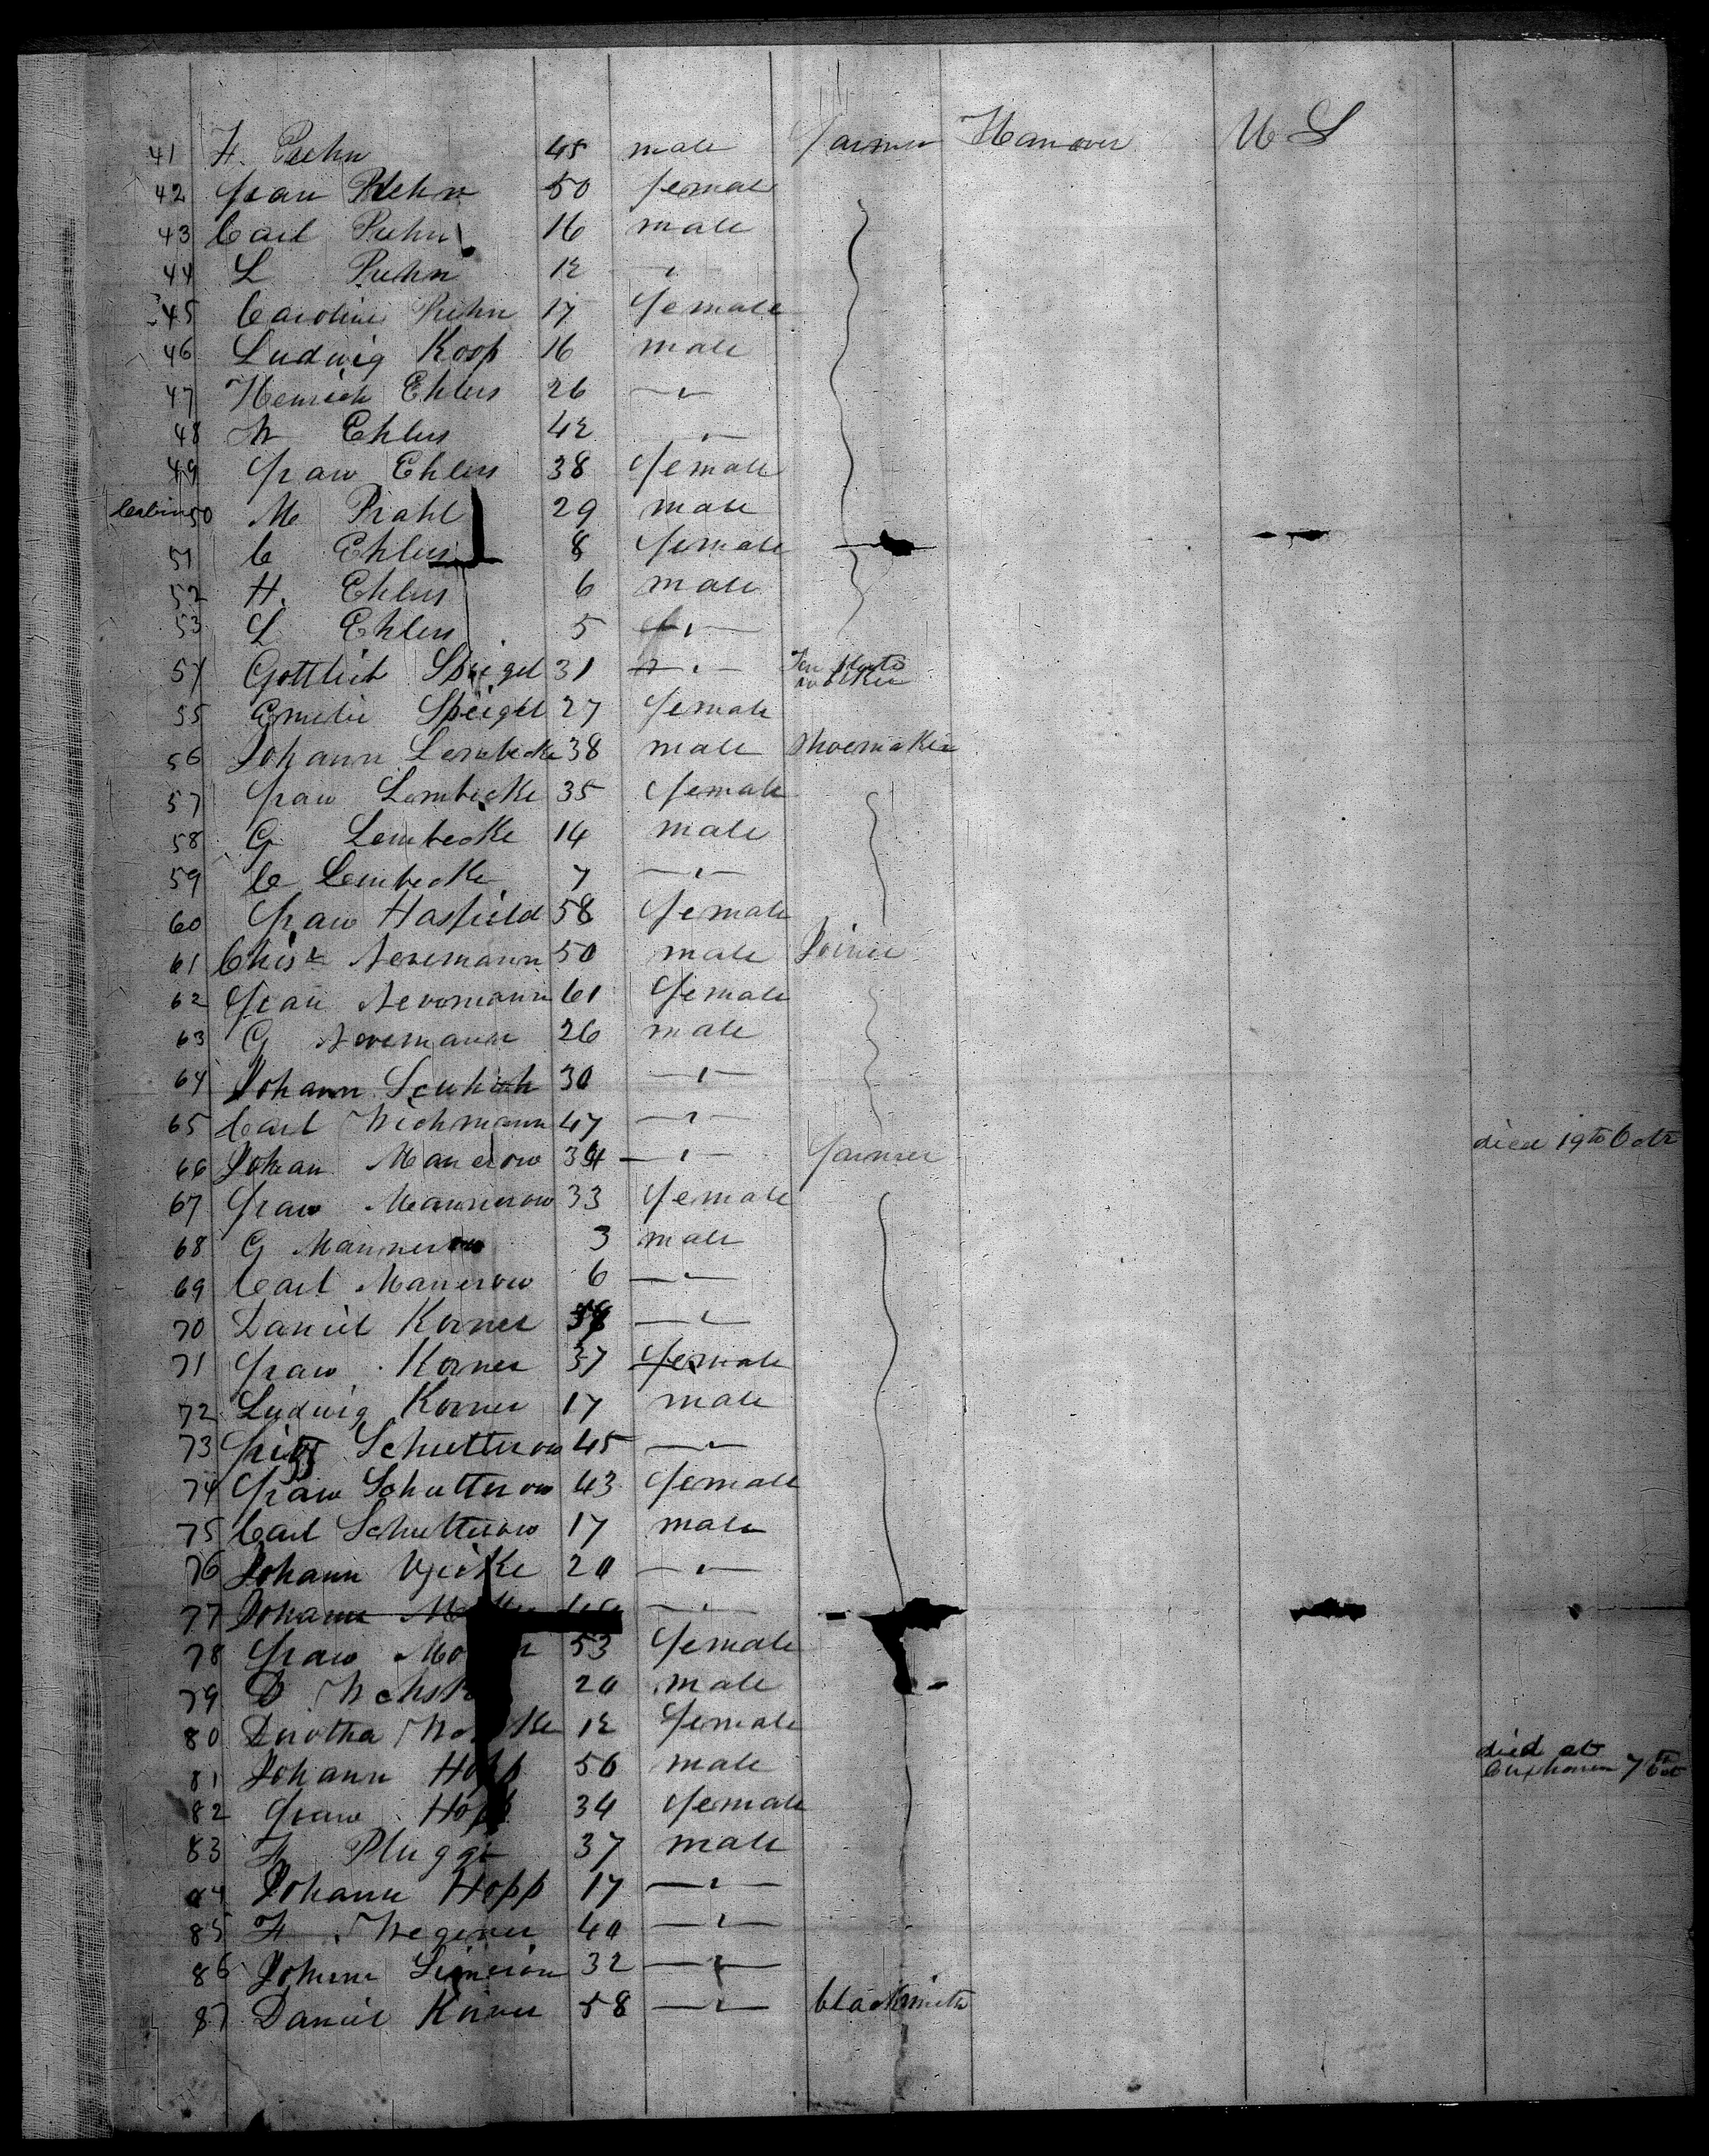 41 H. Puhn 45 male Farmer Hanover U S
42 Frau Puhn 50 female
43 Carl Puhn 16 male
44 L Puhn 12 — " —
45 Caroline Puhn 17 female
46 Ludwig Koop 16 male
47 Heinrich Ehlers 26 — " —
48 W Ehlers 42 — " —
49 Frau Ehlers 38 female
Cabin 50 M Prahl 29 male
51 C Ehlers 8 female
52 H. Ehlers 6 male
53 L Ehlers 5 — " —
54 Gottlieb Speigel 31 — " — worker
55 Emelie Speigel 27 female
56 Johann Lembecke 38 male Shoemaker
57 Frau Lembecke 35 female
58 G Lembecke 14 male
59 C Lembecke 7 — " —
60 Frau Hasfield 58 female
61 Christ Nevemann 50 male Joiner
62 Frau Nevemann 61 female
63 G Nevemann 26 male
64 Johann 30 — " —
65 Carl Wichmann 47 — " —
66 Johan Manerow 34 — " — Farmer died 19th Octr
67 Frau Mannerow 33 female
68 G Mannerow 3 male
69 Carl Manerow 6 — " —
70 Daniel Korner — " —
71 Frau Korner 37 female
72 Ludwig Korner 17 male
73 Fritz Schutterow 45 — " —
74 Frau Schutterow 43 female
75 Carl Schutterow 17 male
76 Johann 20 — " —
77 Johann — " —
78 Frau 53 female
79 D 20 male
80 Dorothea 12 female
81 Johann Hopp 56 male died at Cuxhaven 7th Oct
82 Frau Hopp 34 female
83 Plugge 37 male
84 Johann Hopp 17 — " —
85 H Wegener 40 — " —
86 Johann Simeion 32 — " —
87 Daniel Korner 58 — " — blacksmith